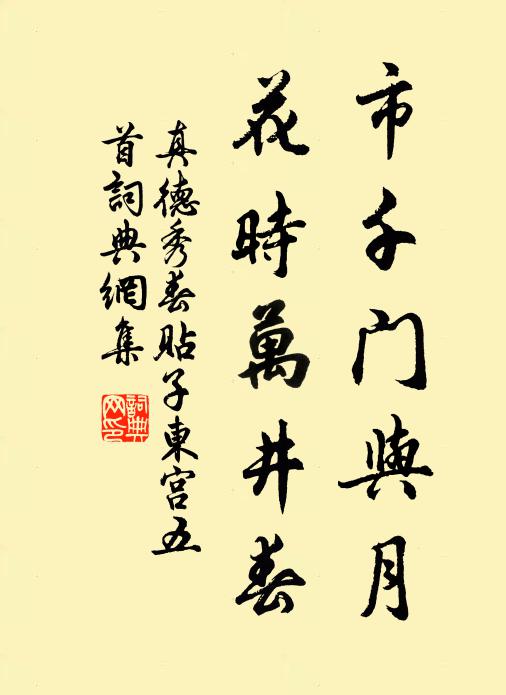 市千門與月
花時萬井春
真德秀春貼子東宮五
首詞典網集
詞典网印